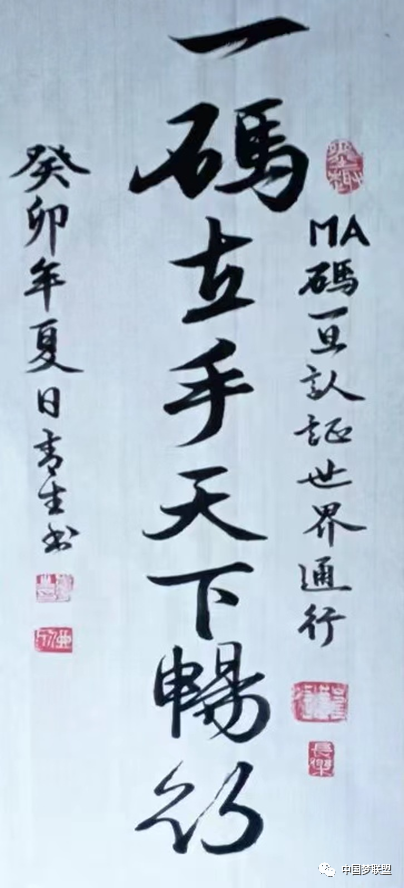 MA碼一旦認証世界通行
一碼在手天下暢行
癸卯年夏日青生书
中国梦联盟